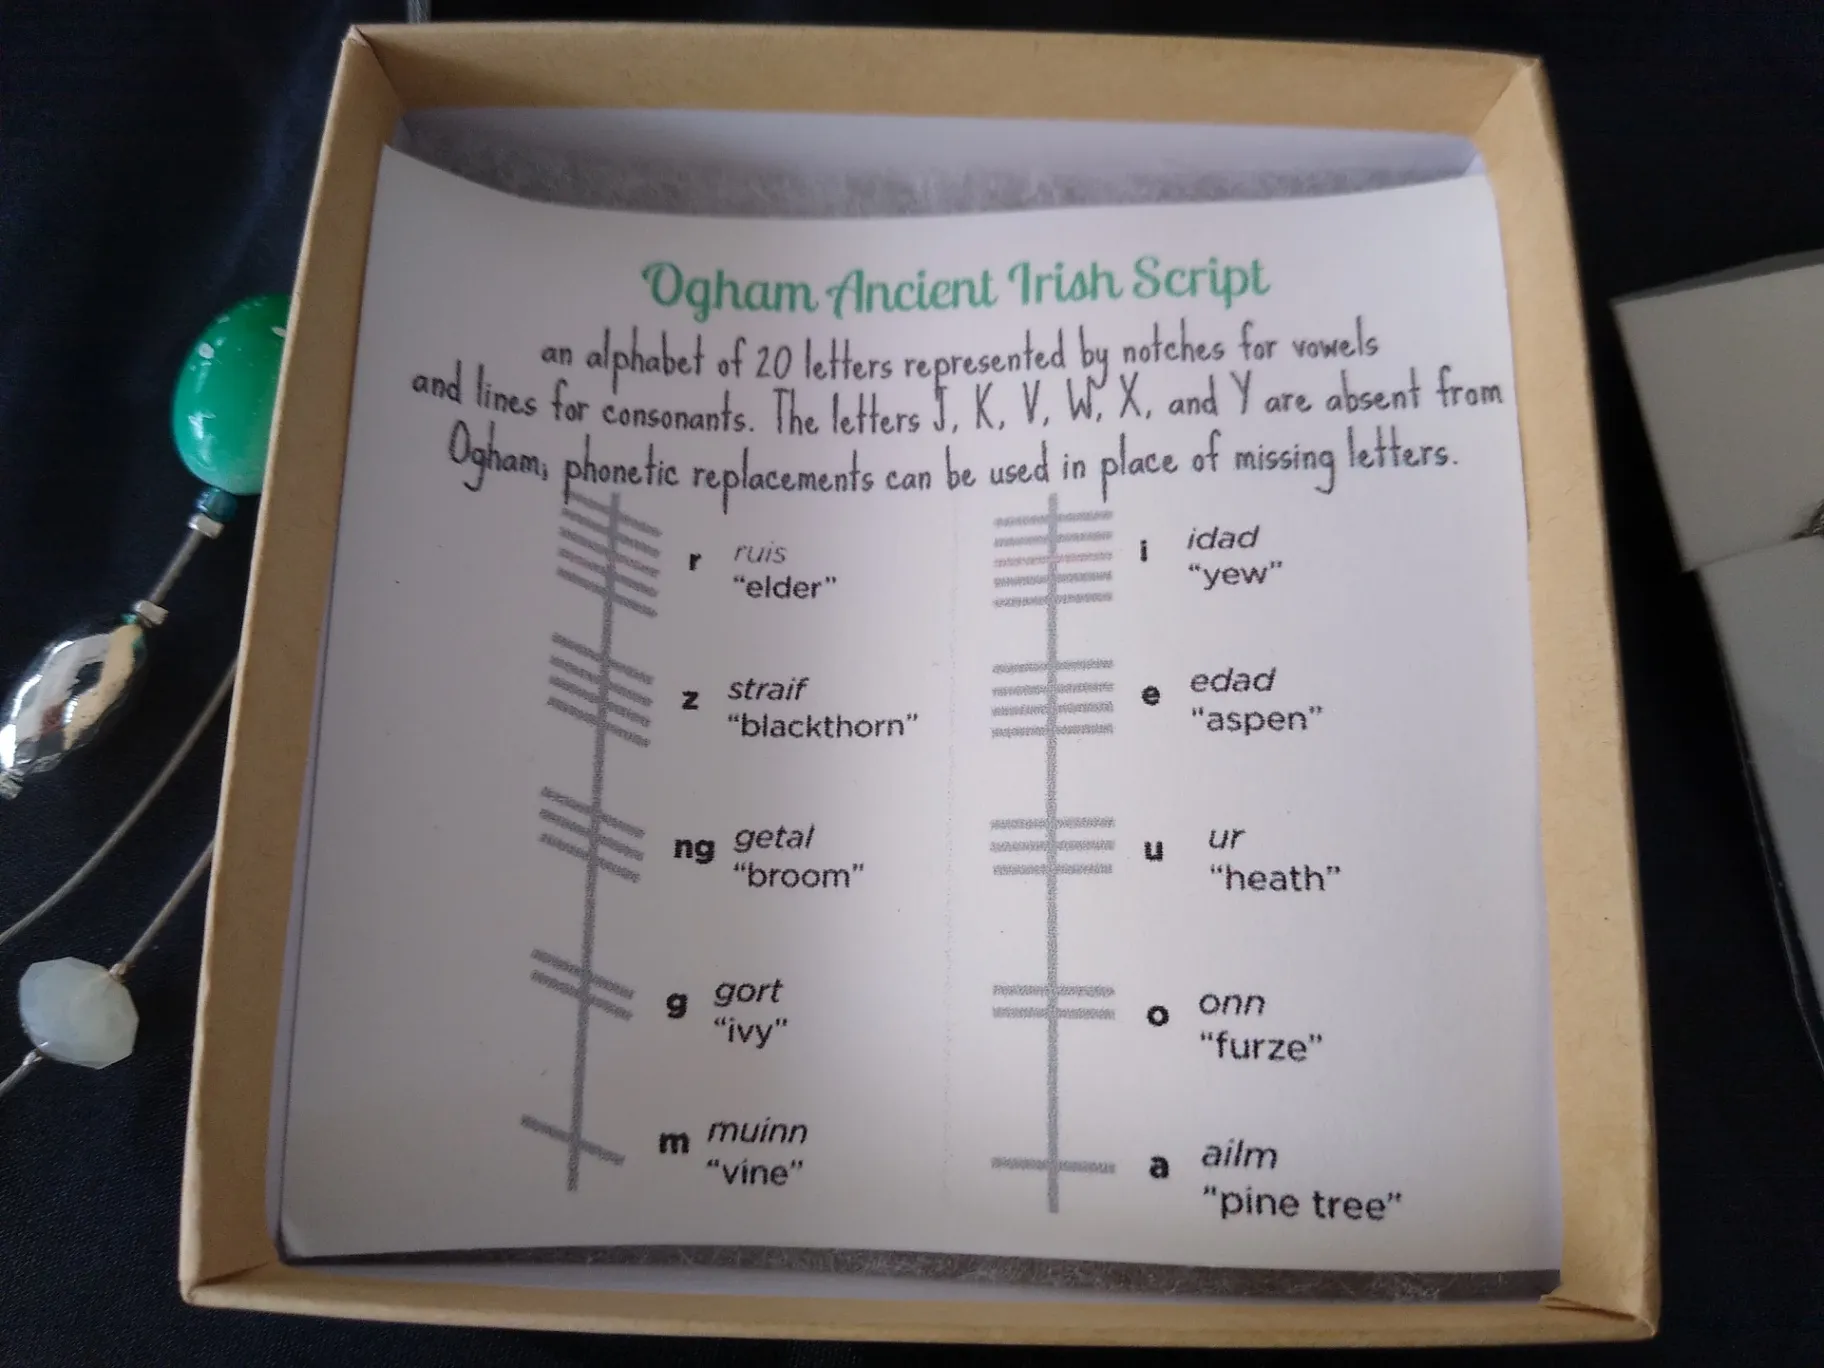 Ogham Ancient Irish Script
an alphabet of 20 letters represented by notches for vowels
and lines for consonants. The letters J, K, V, W, X, and Y are absent from
Ogham, phonetic replacements can be used in place of missing letters.
r ruis
"elder"
z straif
"blackthorn"
ng getal
"broom"
g gort
"ivy"
m muinn
"vine"
i idad
"yew"
e edad
"aspen"
u ur
"heath"
o onn
"furze"
a ailm
"pine tree"